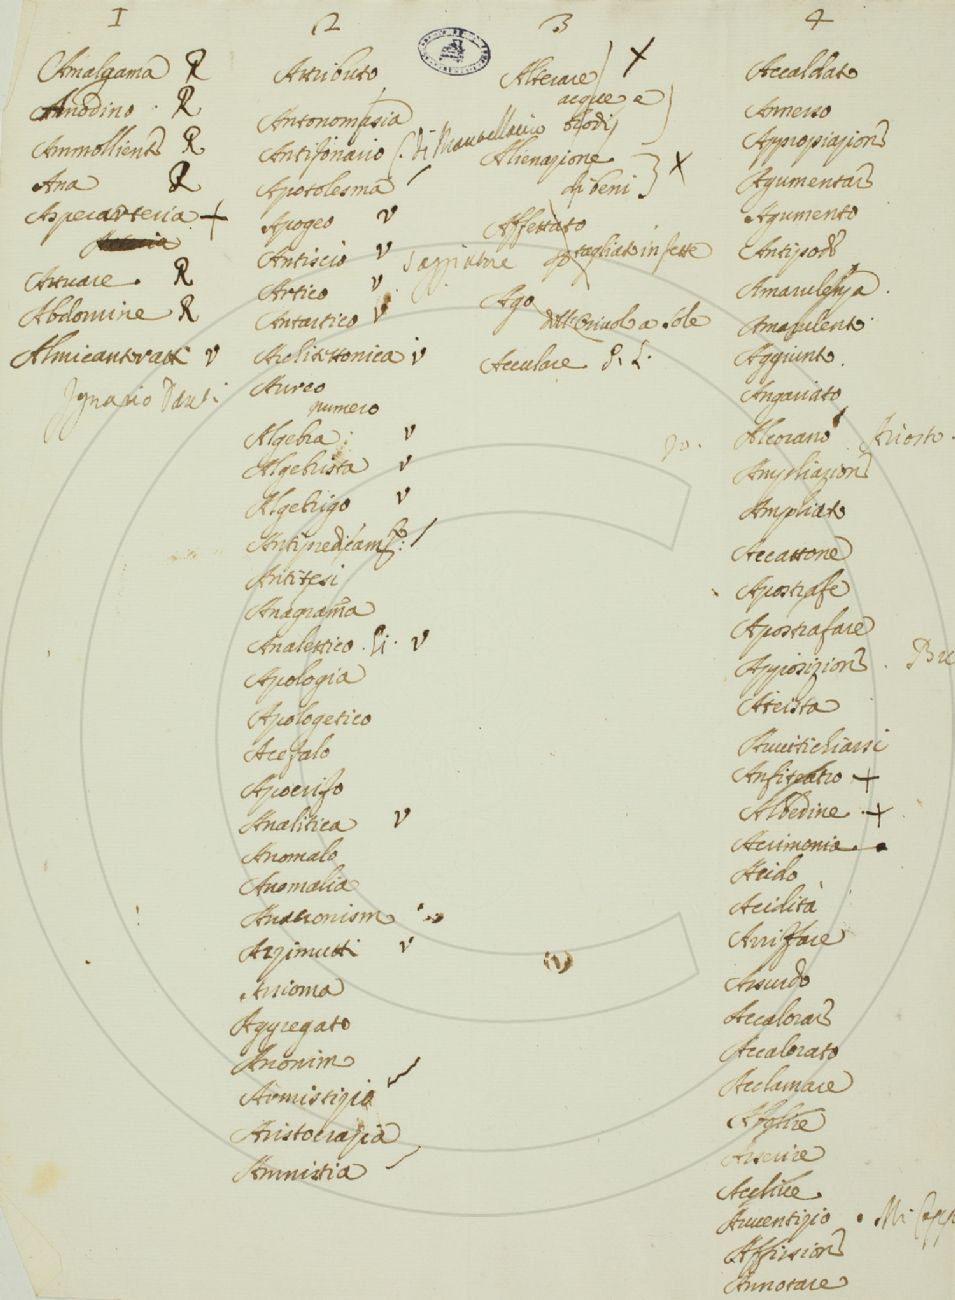 1
Amalgama R
Anodino R
Ammolliente R
Ana R
Asperarteria +
Attuare R
Abdomine R
Almicantratti v
Ignazio Danti
2
Attributo
Antonomasia
Antifonario
Apotelesma
Apogeo v
Antiscio v
Artico v
Antartico v
Aristottonica v
Aureo
numero
Algebra v
Algebrista v
Algebrigo v
Antitesi
Anagrama
Analettico v
Apologia
Apologetico
Acefalo
Apocrifo
Analitica v
Anomalo
Anomalia
Anacronism
Azzimutti v
Assioma
Aggregato
Anonim
Armistizio
Aristocrazia
Amnistia
3
Alterare X
acque e
Alienazione X
di beni
Affettato
tagliato in fette
Ago
dell'Oriuolo a Sole
Acculare
4
Accaldato
Annesso
Appropiazione
Agumentare
Agumento
Antipodi
Amarulenza
Amarulento
Aggiunto
Angariato
Alcorano Ariosto
Ampliazione
Ampliato
Accattone
Apostrafe
Apostrafare
Apposizione
Ateista
Ammutichiarsi
Anfiteatro +
Albedine +
Acrimonia
Acido
Acidità
Arriffare
Assurdo
Accalorare
Accalorato
Acclamare
Asserire
Acclive
Avventizio
Affissione
Annotare